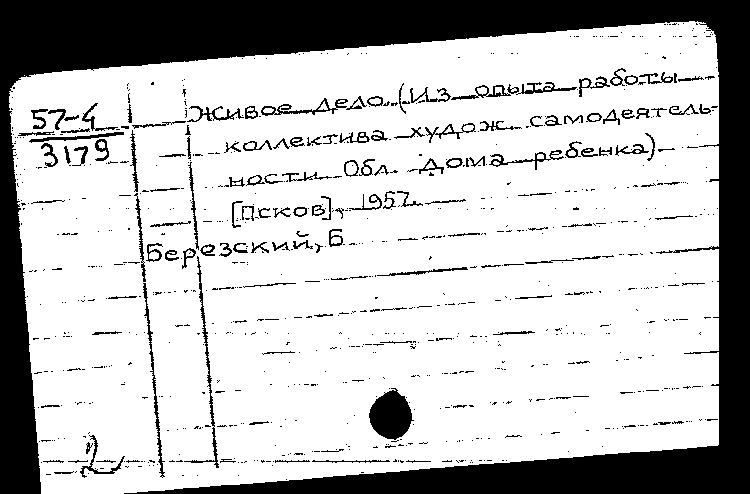 57-4
3179
Живое дело. (Из опыта работы
коллектива худож. самодеятель-
ности Обл. Дома ребенка).
[Псков], 1957.
Березский, Б
2